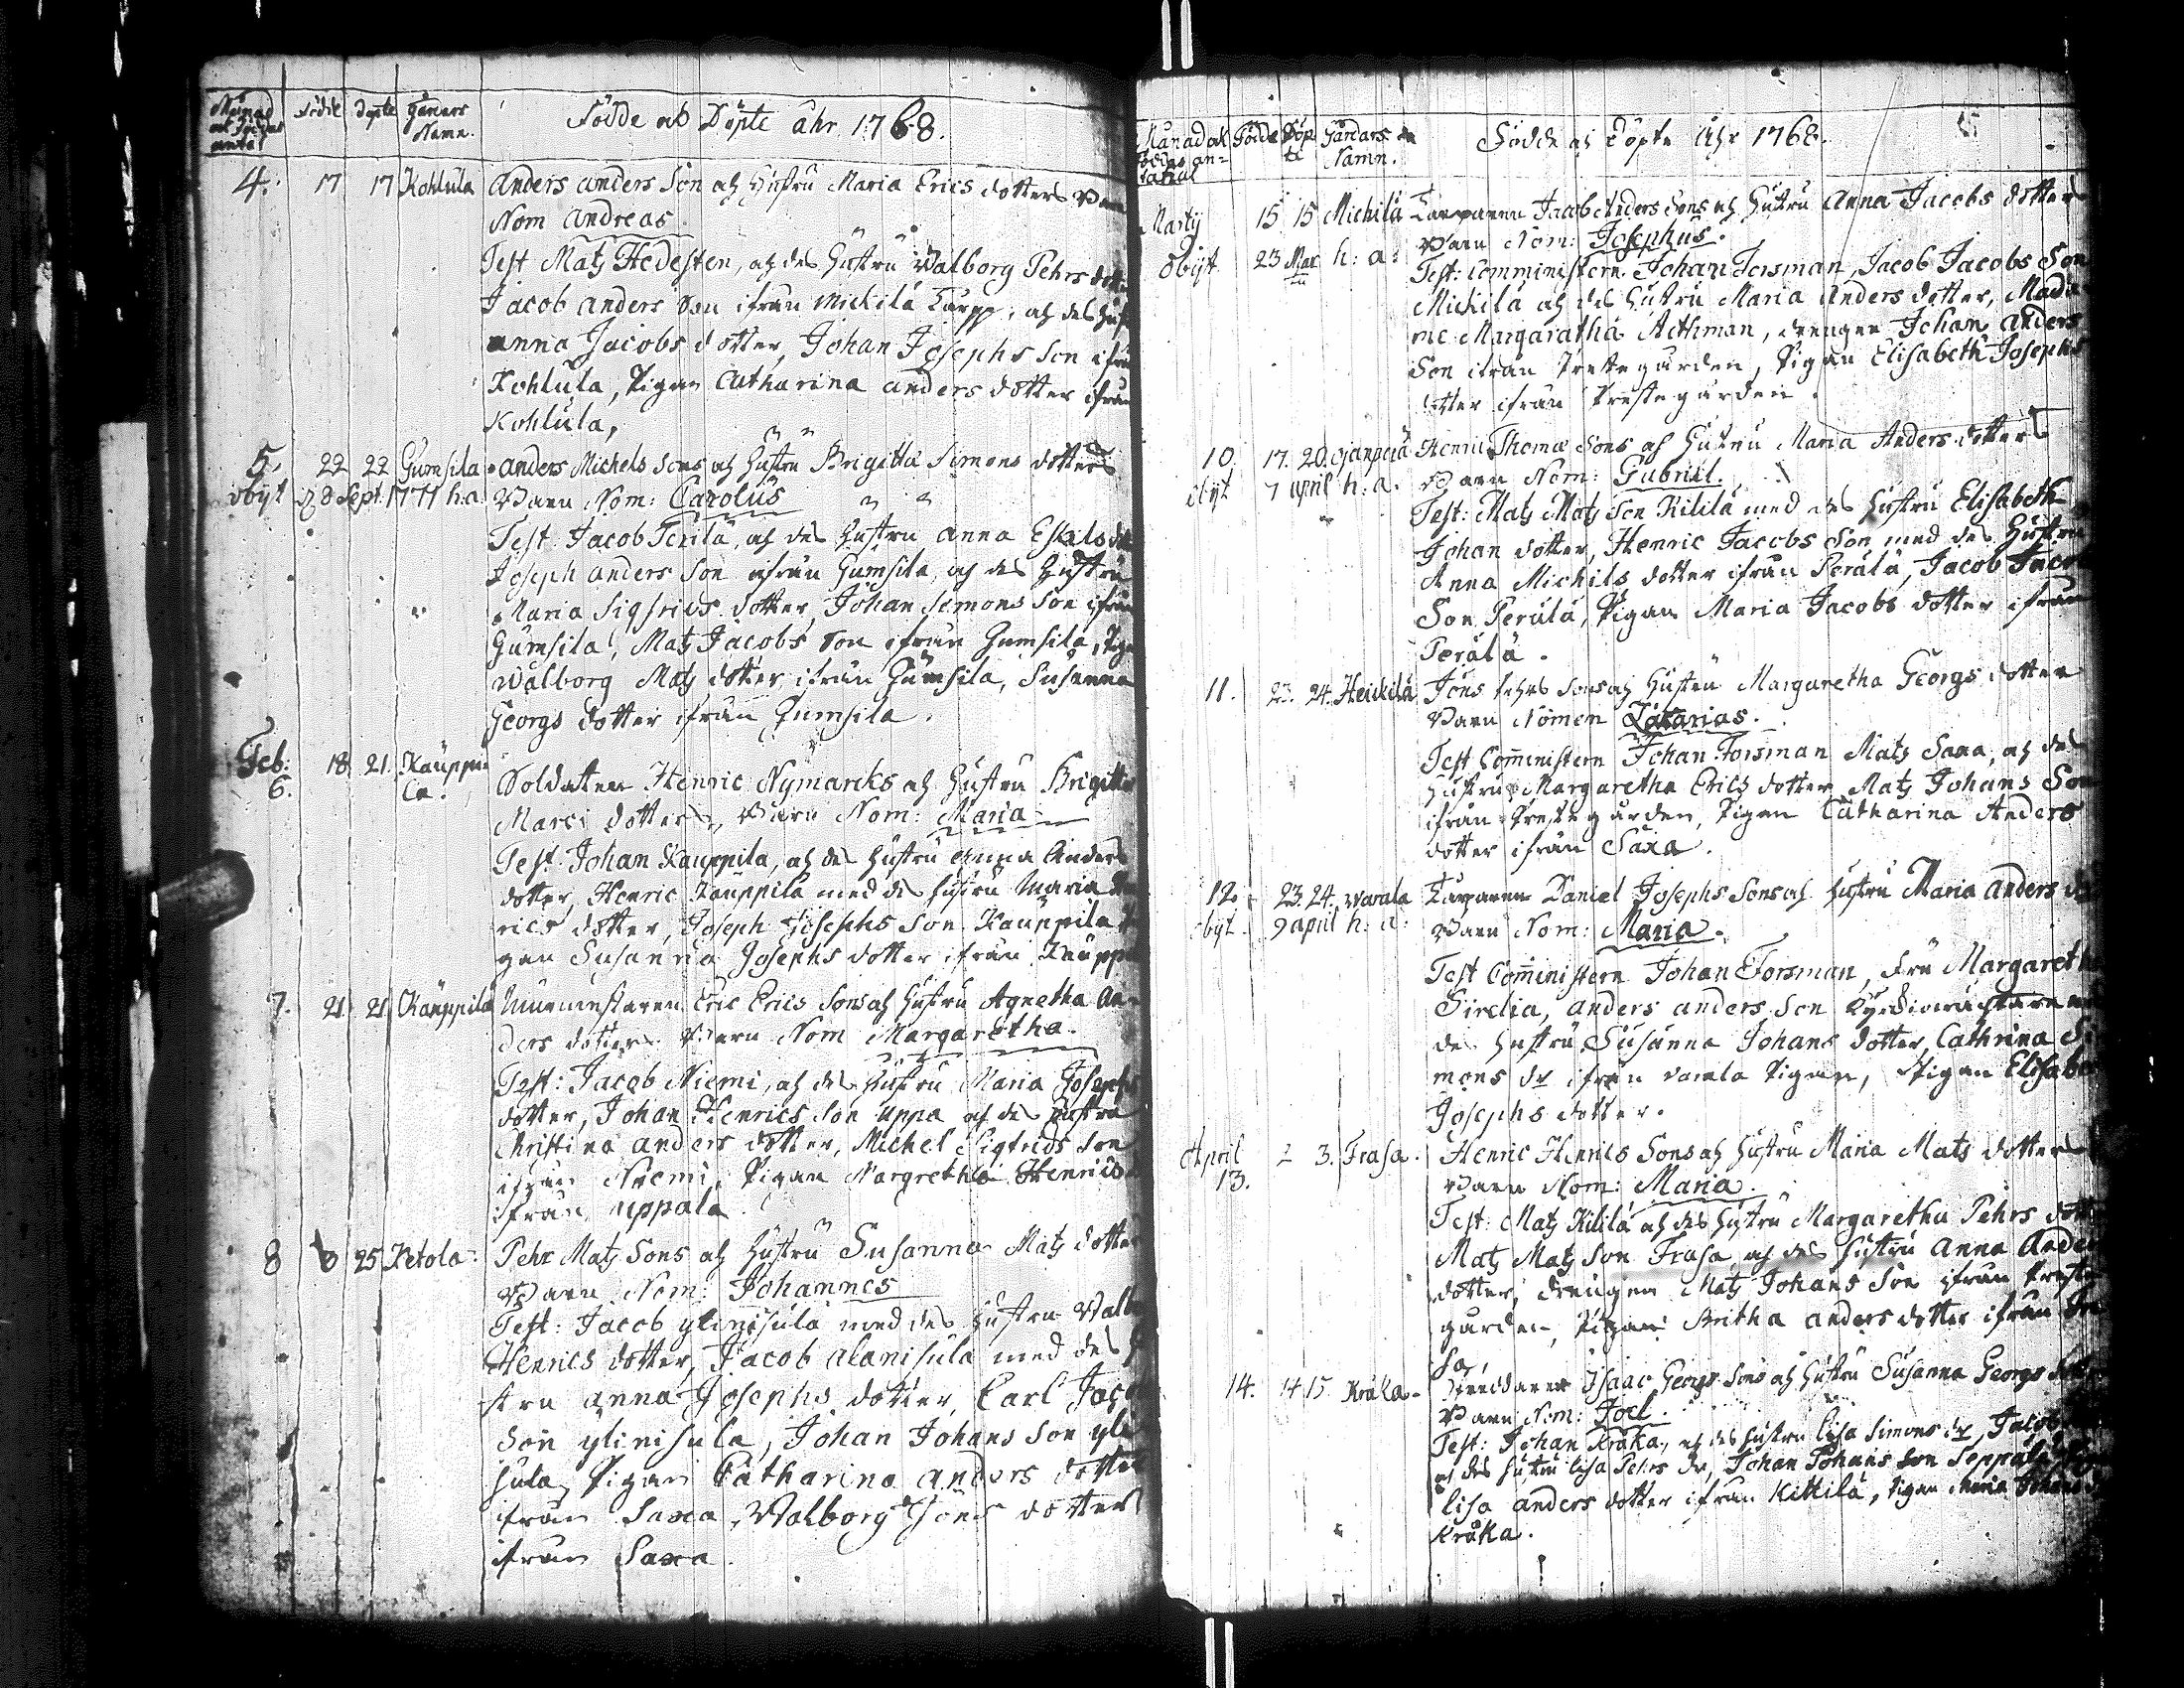 Månad
och Födas
antal
Födde
Döpte
Gårdars
Namn.
Födde och Döpte åhr 1768.
4. 17 17 Kohlula Anders Anders Son och Hustru Maria Erics dotters Barn
Nom Andreas
Test Mats Hedesten, och des Hustru Walborg Pehrs dotter
Jacob Anders Son ifrån Mickilä Torpp, och des Hust
Anna Jacobs dotter, Johan Josephs Son ifrån
Kohlula, Pigan Catharina Anders dotter ifrån
Kohlula,
5. 22 22 Gumsila Anders Michels Sons och Hustru Brigitta Simons dotters
obijt 8 Sept. 1771 h:a Barn Nom: Carolus
Test Jacob Terilä, och des Hustru Anna Eskils dott
Joseph Anders Son ifrån Gumsila, och des Hustru
Maria Sigfrids dotter, Johan Simons Son ifrån
Gumsila, Mats Jacobs Son ifrån Gumsila, Pigan
Walborg Mats dotter ifrån Gumsila, Susanna
Georgs dotter ifrån Gumsila.
Feb:
6. 18 21. Kauppi
la. Soldaten Henric Nymarcks och Hustru Brigitta
Marci dotters, Barn Nom: Maria
Test: Johan Kauppila, och des Hustru Anna Anders
dotter, Henric Kauppila med des Hustru Maria Hen
rics dotter, Joseph Josephs Son Kauppila Pi
gan Susanna Josephs dotter ifrån Kauppi
7. 21 21 Kauppila Murmestaren Eric Erics Sons och Hustru Agnetha An-
ders dotters Barn Nom Margaretha.
Test: Jacob Niemi, och des Hustru Maria Josephs
dotter, Johan Henrics Son Uppa och des Hustru
Christina Anders dotter, Michel Sigfrids Son
ifrån Niemi, Pigan Margretha Henrics
ifrån Uppala
8 25 Ketola Pehr Mats Sons och Hustru Susanna Mats dotter
Barn Nom: Johannes
Test: Jacob ylinisula med des Hustru Walb
Henrics dotter, Jacob alanisula med des H
stru Anna Josephs dotter, Carl Jacobs
Son ylinisula, Johan Johans Son yli
sula, Pigan Catharina Anders dotter
ifrån Saxa, Walborg Jöns dotter
ifrån Saxa.
Månad och
Födas an-
tahal
Födde
Döp
te
Gårdars
Namn.
Födde och Döpte Åhr 1768.
Martij 15 15 Mickilä Torparen Jacob Anders Sons och Hustru Anna Jacobs dotters
Barn Nom: Josephus.
Obijt 23 Mar h: a: Test: Comministern Johan Forsman, Jacob Jacobs Son
Mickilä och des Hustru Maria Anders dotter, Mada
me Margaratha Acthman, drengen Johan Anders
Son ifrån Prestegården, Pigan Elisabeth Josephs
dotter ifrån Prestegården.
10. 17. 20. Henric Thomæ Sons och Hustru Maria Anders dotters
obijt 7 April h: a. Barn Nom: Gabriel.
Test: Mats Mats Son Kililä med des Hustru Elisabeth
Johan dotter, Henric Jacobs Son med des Hustru
Anna Michils dotter ifrån Perälä, Jacob Jacobs
Son Perälä, Pigan Maria Jacobs dotter ifrån
Perälä.
11. 23. 24. Heickilä Jöns Pehrs Sons och Hustru Margaretha Georgs dotter
Barn Nomen Zakarias.
Test Comministern Johan Forsman Mats Saxa, och des
Hustru Margaretha Erics dotter, Mats Johans Son
ifrån Prestegården, Pigan Catharina Anders
dotter ifrån Saxa.
12. 23. 24. Warala Torparen Daniel Josephs Sons och Hustru Maria Anders do
obijt. 9 april h: a: Barn Nom: Maria.
Test Comministern Johan Forsman, Fru Margareth
Sirelia, Anders Anders Son med
des Hustru Susanna Johans dotter, Cathrina Si
mons dr ifrån Varala Pigan, Pigan Elisabe
Josephs dotter.
April
13. 2 3. Frasa. Henric Henrics Sons och Hustru Maria Mats dotters
Barn Nom: Maria.
Test: Mats Kililä och des Hustru Margaretha Pehrs dotter
Mats Mats Son Frasa och des Hustru Anna Anders
dotter, Drengen Mats Johans Son ifrån Preste
gården, Pigan Britha Anders dotter ifrån Fra
sa,
14. 14 15. Kråka. Isaac Georgs Sons och Hustru Susanna Georgs dott
Barn Nom: Joel.
Test: Johan Kråka, och des Hustru Lisa Simons dr, Jacob
och des Hustru Lisa Pehrs dr, Johan Johans Son Seppälä, Pigan
Lisa Anders dotter ifrån Kittilä, Pigan Maria Johans
Kråka.